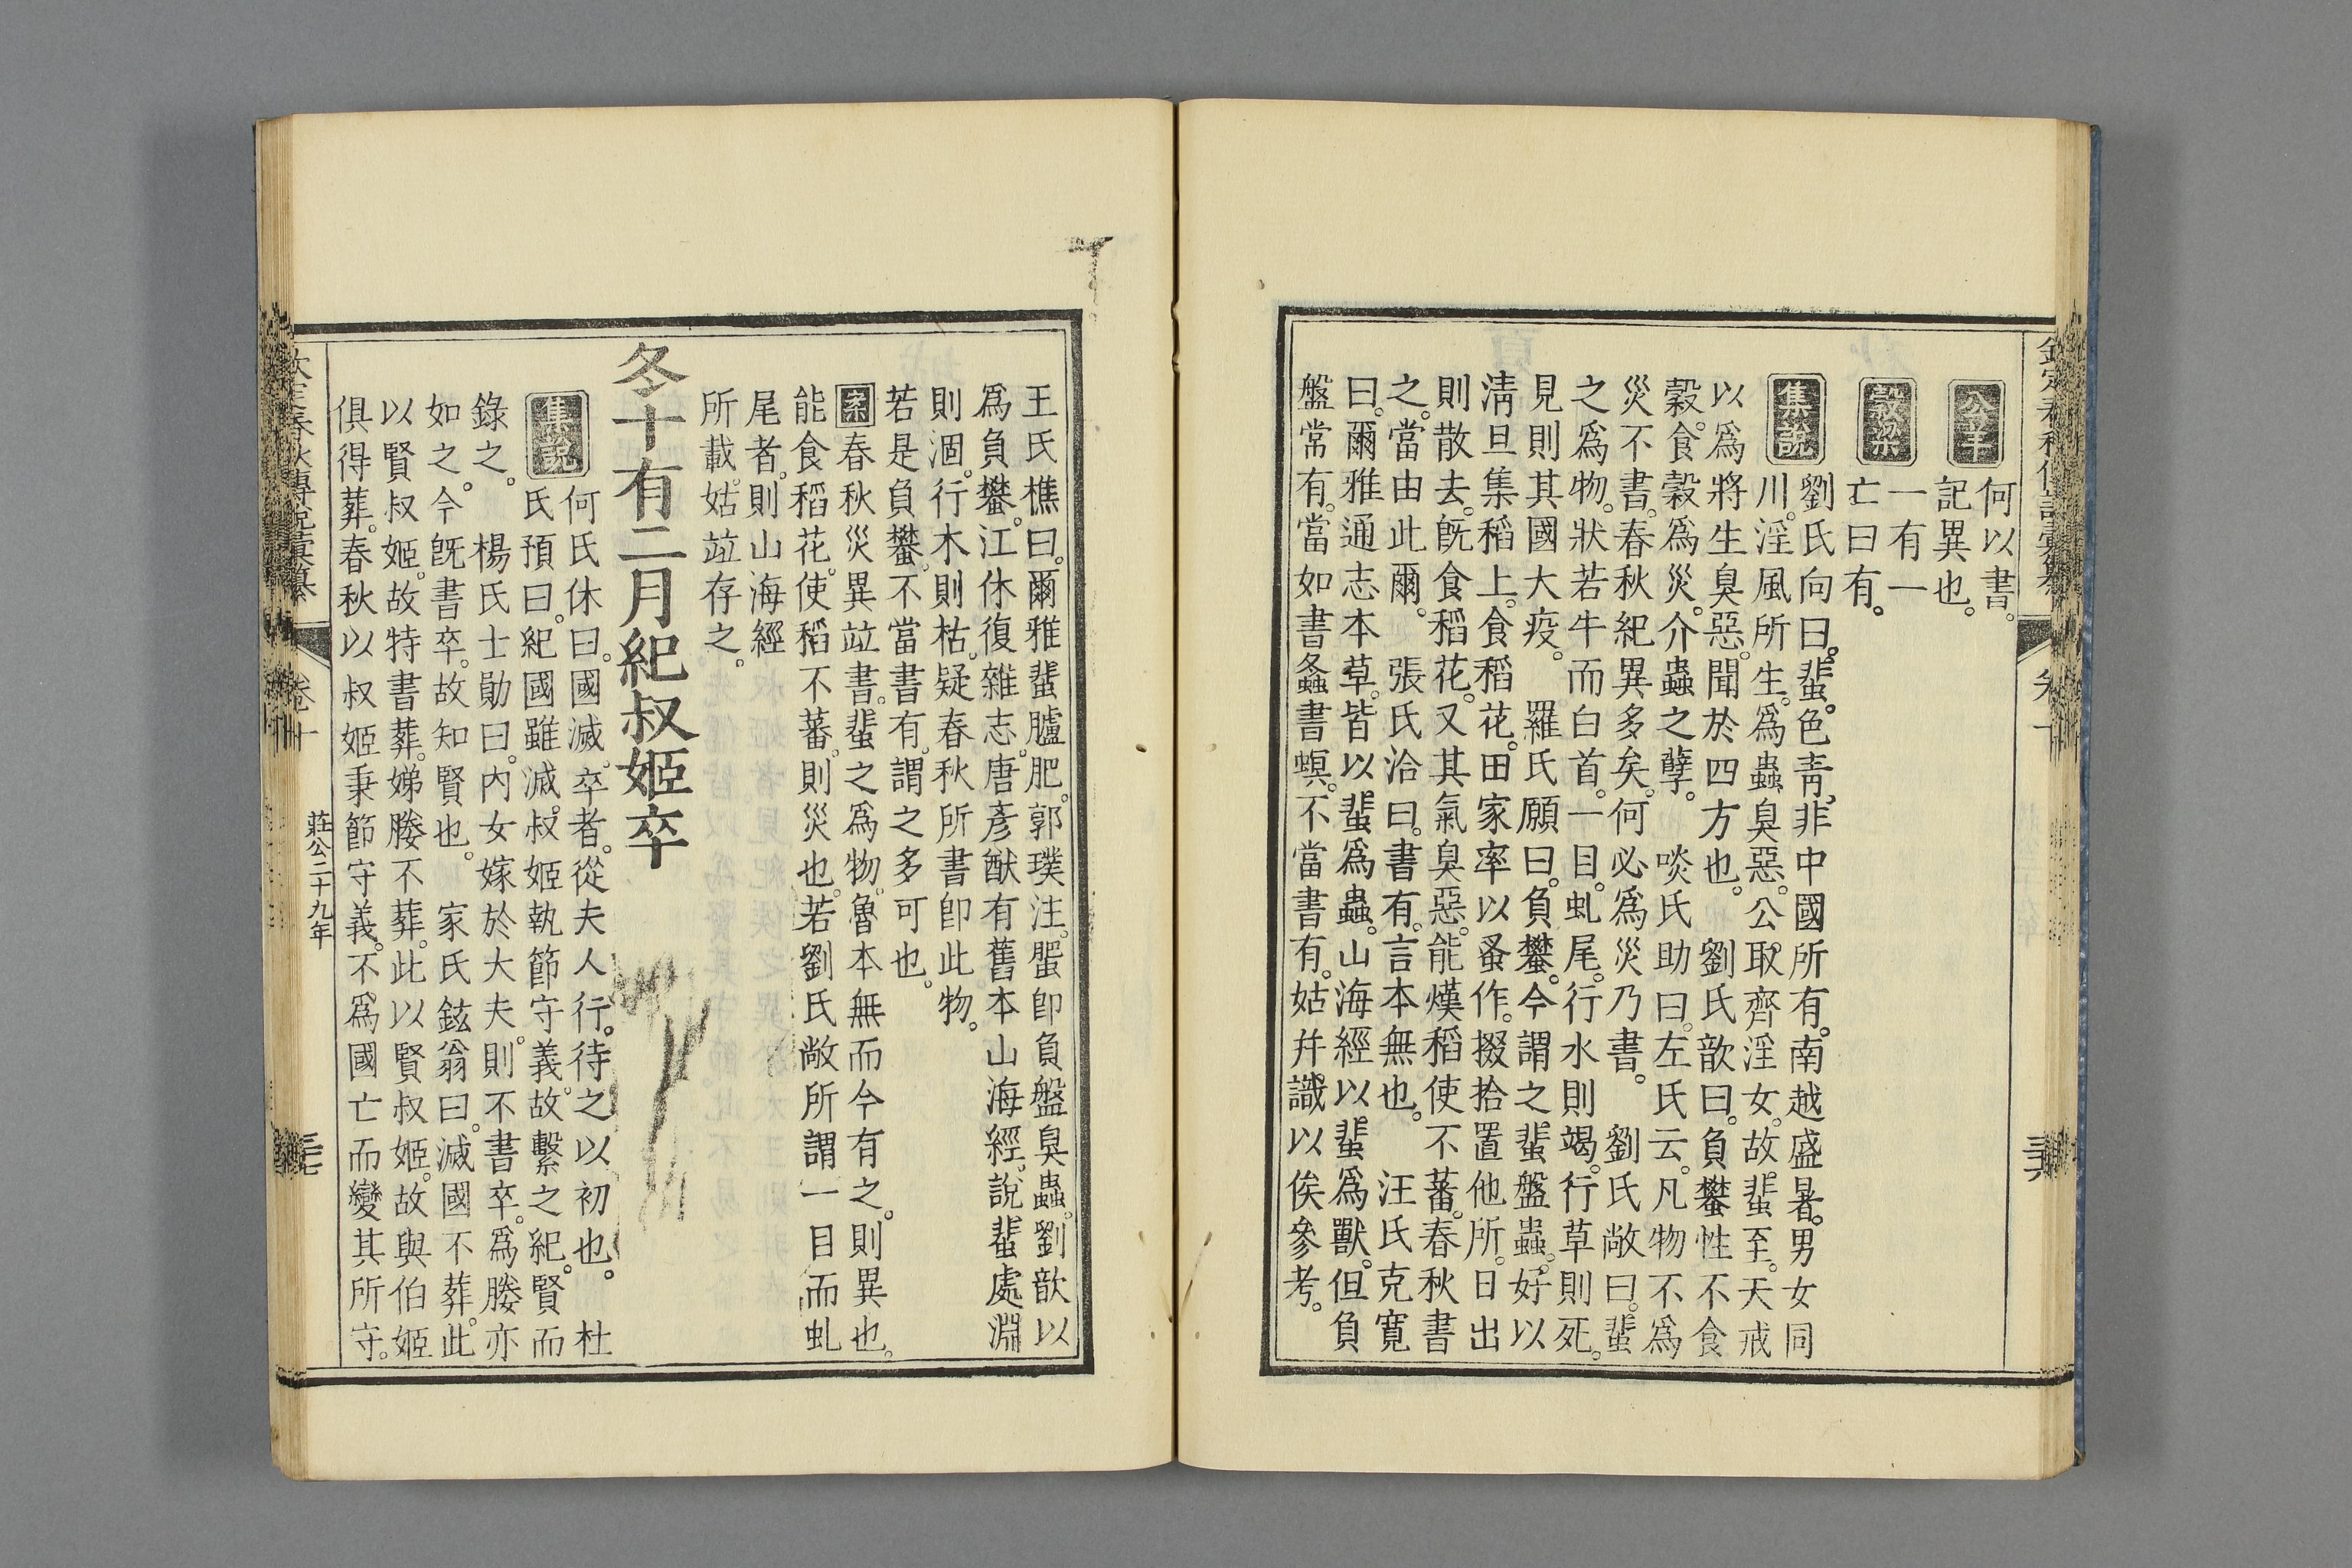 公羊
何以書。
記異也。
穀梁
一有一
亡曰有。
集說
劉氏向曰。蜚。色青。非中國所有。南越盛暑。男女同
川。淫風所生。爲蟲臭惡。公取齊淫女。故蜚至。天戒
以爲將生臭惡。聞於四方也。　劉氏歆曰。負蠜性不食
穀。食穀爲災。介蟲之孽。　啖氏助曰。左氏云。凡物不爲
災不書。春秋紀異多矣。何必爲災乃書。　劉氏敞曰。蜚
之爲物。狀若牛而白首。一目。虬尾。行水則竭。行草則死。
見則其國大疫。　羅氏願曰。負蠜。今謂之蜚盤蟲。好以
淸旦集稻上。食稻花。田家率以蚤作。掇拾置他所。日出
則散去。旣食稻花。又其氣臭惡。能熯稻使不蕃。春秋書
之。當由此爾。　張氏洽曰。書有。言本無也。　汪氏克寬
曰。爾雅通志本草。皆以蜚爲蟲。山海經以蜚爲獸。但負
盤常有。當如書螽書螟。不當書有。姑幷識以俟參考。
王氏樵曰。爾雅蜚蠦肥。郭璞注。蜰卽負盤臭蟲。劉歆以
爲負蠜。江休復雜志。唐彥猷有舊本山海經。說蜚處淵
則涸。行木則枯。疑春秋所書卽此物。
若是負蠜。不當書有。謂之多可也。
案春秋災異竝書。蜚之爲物。魯本無而今有之。則異也。
能食稻花。使稻不蕃。則災也。若劉氏敞所謂一目而虬
尾者。則山海經
所載。姑竝存之。
冬十有二月紀叔姬卒
集說
何氏休曰。國滅。卒者。從夫人行。待之以初也。　杜
氏預曰。紀國雖滅。叔姬執節守義。故繫之紀。賢而
錄之。　楊氏士勛曰。內女嫁於大夫。則不書卒。爲媵亦
如之。今旣書卒。故知賢也。　家氏鉉翁曰。滅國不葬。此
以賢叔姬。故特書葬。娣媵不葬。此以賢叔姬。故與伯姬
俱得葬。春秋以叔姬秉節守義。不爲國亡而變其所守。
欽定春秋傳說彙纂
卷十
莊公二十九年